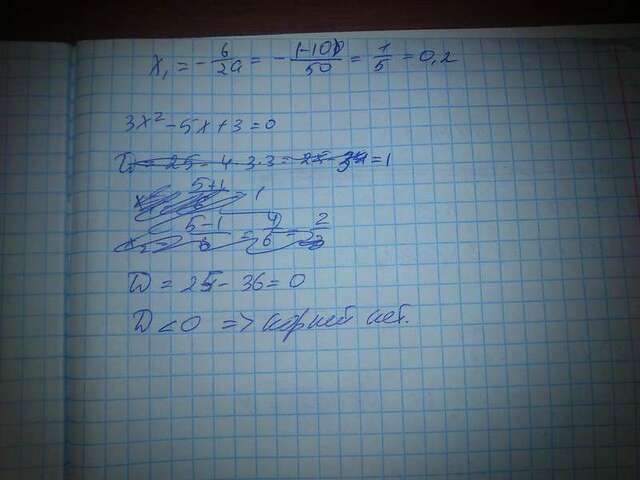 x₁ = -6/2a = -(-10)/50 = 1/5 = 0,2
3x² - 5x + 3 = 0
D = 25 - 4·3·3 = 25 - 24 = 1
5+1/6 = 1
5-1/6 = 4/6 = 2/3
D = 25 - 36 = 0
D < 0 => корней нет.